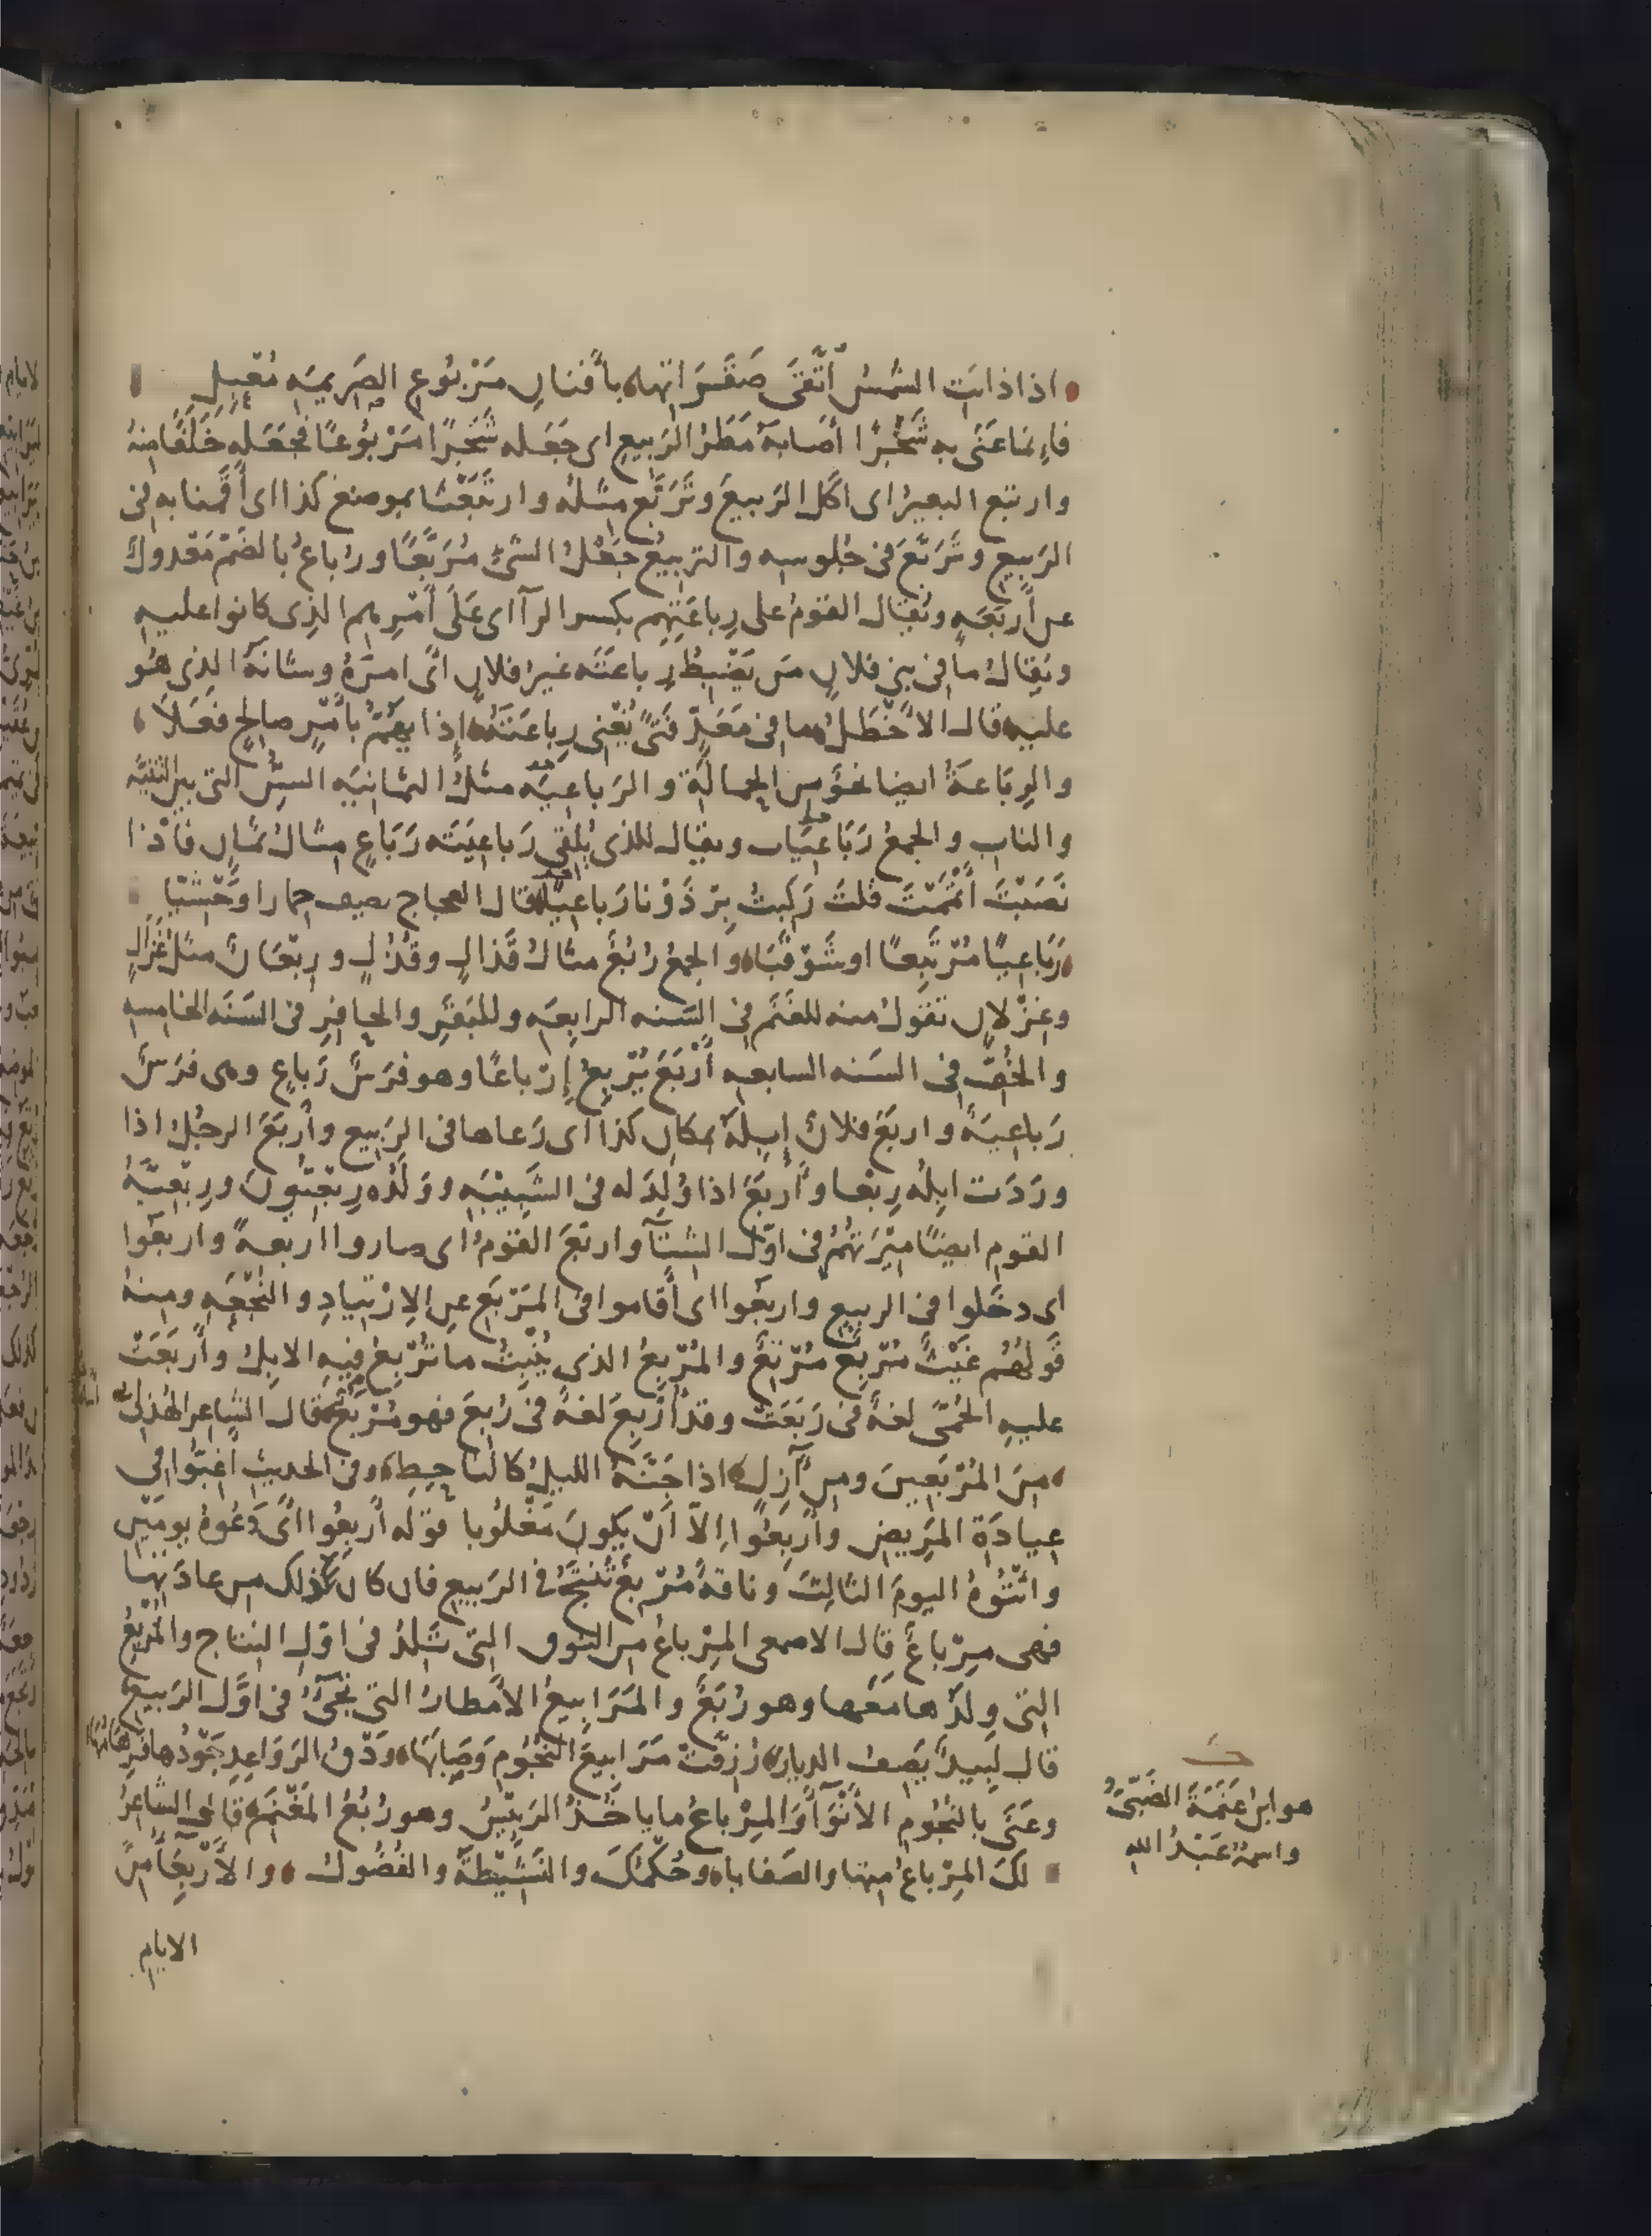 اذا ذابت الشمس اتّقى صَقَراتها بأفنانِ مَرْبُوعِ الصَّرِيمَةِ مُعْبِل
فإنما عَنَى به شَجَرًا أصابَهُ مَطَرُ الرَبيعِ اى جَعَله شَجَرًا مَرْبُوعًا فجعَله خَلَفًا منهُ
وارتبع البعيرُ اى اكل الربيعَ وتَرَبَّع مثلُه وارتَبَعْنَا بموضع كذا اى أقمنا به فى
الرَبيعِ وتَرَبَّعَ فى جُلوسه والتربيعُ جَعْلُ الشىْ مُرَبَّعًا ورُباعُ بالضَم مَعْدولٌ
عن أربَعَةٍ ويُقال القومُ على رِباعَتِهِم بكسر الرآ اى عَلَى أمْرِهم الذى كانوا عليه
ويُقالُ ما فى بنى فلانٍ مَن يَضْبِطُ رِباعَتَه غيرُ فلانٍ اى امرَهُ وشانَهُ الذى هُو
عليه قال الأخْطَلُ ما فى مَعَدٍّ فَتًى يُغْنى رِباعَتَهُ إذا يَهُمُّ بأمْرٍ صالحٍ فَعَلَا
والرِبَاعَةُ ايضا نحوٌ من الحمالة والرَباعِيَة مثلُ الثمانيَه السِنّ التى بين الثنيّه
والناب والجمعُ رَبَاعِيَات ويقال للذى يُلقى رَباعِيَتَه رَبَاعٍ مثالُ ثمانٍ فاذا
نَصَبْتَ أتْمَمْتَ قلتَ رَكِبتُ بِرْذَوْنا رَباعِيًا قال العجاج يصف حمارا وَحْشيّا
رَبَاعِيًا مُرْتَبِعًا او شَوْقَبَا والجمعُ رُبُعٌ مثالُ قَذالٍ وقُذُلٍ ورِبْعَانٌ مثلُ غَزَالٍ
وغِزْلانٍ تقولُ منه للغَنَم فى السَنه الرابعَه وللبَقَرِ والحافِرِ فى السَنَه الخامسه
والخُفّ فى السَنه السابعه أَرْبَعَ يُرْبِعُ إِرْباعًا وهو فَرَسٌ رَباعٍ وهى فرَسٌ
رَباعِيَةٌ واربَعَ فلانٌ إبِلَهُ بمكانِ كذا اى رَعاها فى الرَبيع وأربَعَ الرجُلُ اذا
ورَدَت ابِلُه رِبْعا وأَربَعَ اذا وُلِدَ له فى الشَبِيْبَه ووَلَدُه رِبْعيُّونَ ورِبْعِيَّةُ
القومِ ايضًا مِيْرَتُهُمْ فى اوّل الشتآ واربَعَ القومُ اى صاروا اربعةً واربعُوا
اى دخلوا فى الربيع واربعُوا اى أقاموا فى المَرْبَع عن الاِرْتيادِ والنُجْعَه ومِنهُ
قَولُهُم غَيْثٌ مُرْبِعٌ مُرْتِعٌ والمُرْبِعُ الذى يُنْبِتُ ما تَرْبَعُ فيه الابلُ وأربَعَتْ
عليه الحُمّى لغةٌ فى رَبَعَتْ وقد اُرْبِعَ لغةٌ فى رُبِعَ فهو مُرْبَعٌ قال الشاعر الهُذلى
مِنَ المُرْبَعِينَ ومِن آزِلٍ اذا جَنَّهُ الليلُ كالناحِطِ وفى الحديث أغِبُّوا فى
عِيادَةِ المَرِيضِ وأربِعُوا إلاّ أنْ يكونَ مَغْلُوبا قوله أربِعُوا اى دَعُوهُ يومَيْنِ
وائتُوهُ اليومَ الثالثَ وناقةٌ مُرْبِعٌ تُنتَجُ فى الرَبيعِ فان كان ذلك من عادَتها
فهى مِرْباعٌ قال الاصمعى المِرْباعُ من النوق التى تَلِدُ فى اوّلِ النِتاج والمُرْبِعُ
التى ولَدُها مَعَها وهو رُبَعٌ والمَرَابيعُ الأمطارُ التى تجىْ فى اوَّلِ الرَبيع
قال لَبِيدٌ يَصف الديار رُزِقَتْ مَرَابيعَ النُجُوم وَصَابَهَا وَدْقُ الرَوَاعِدِ جَوْدُها فرِهَامُهَا
وعَنَى بالنُجُومِ الأنْوَآ والمِرْباعُ ما ياخُذُ الرَئيسُ وهو رُبُعُ المَغْنَمِ قال الشاعرُ
لكَ المِرْباعُ منها والصَفايا وحُكْمُكَ والنَشِيْطَةُ والفُضُولُ والأَرْبِعَآ من
الايام
هو ابنُ عَنَمَةَ الضَبّىُّ
واسمُه عَبْدُ الله